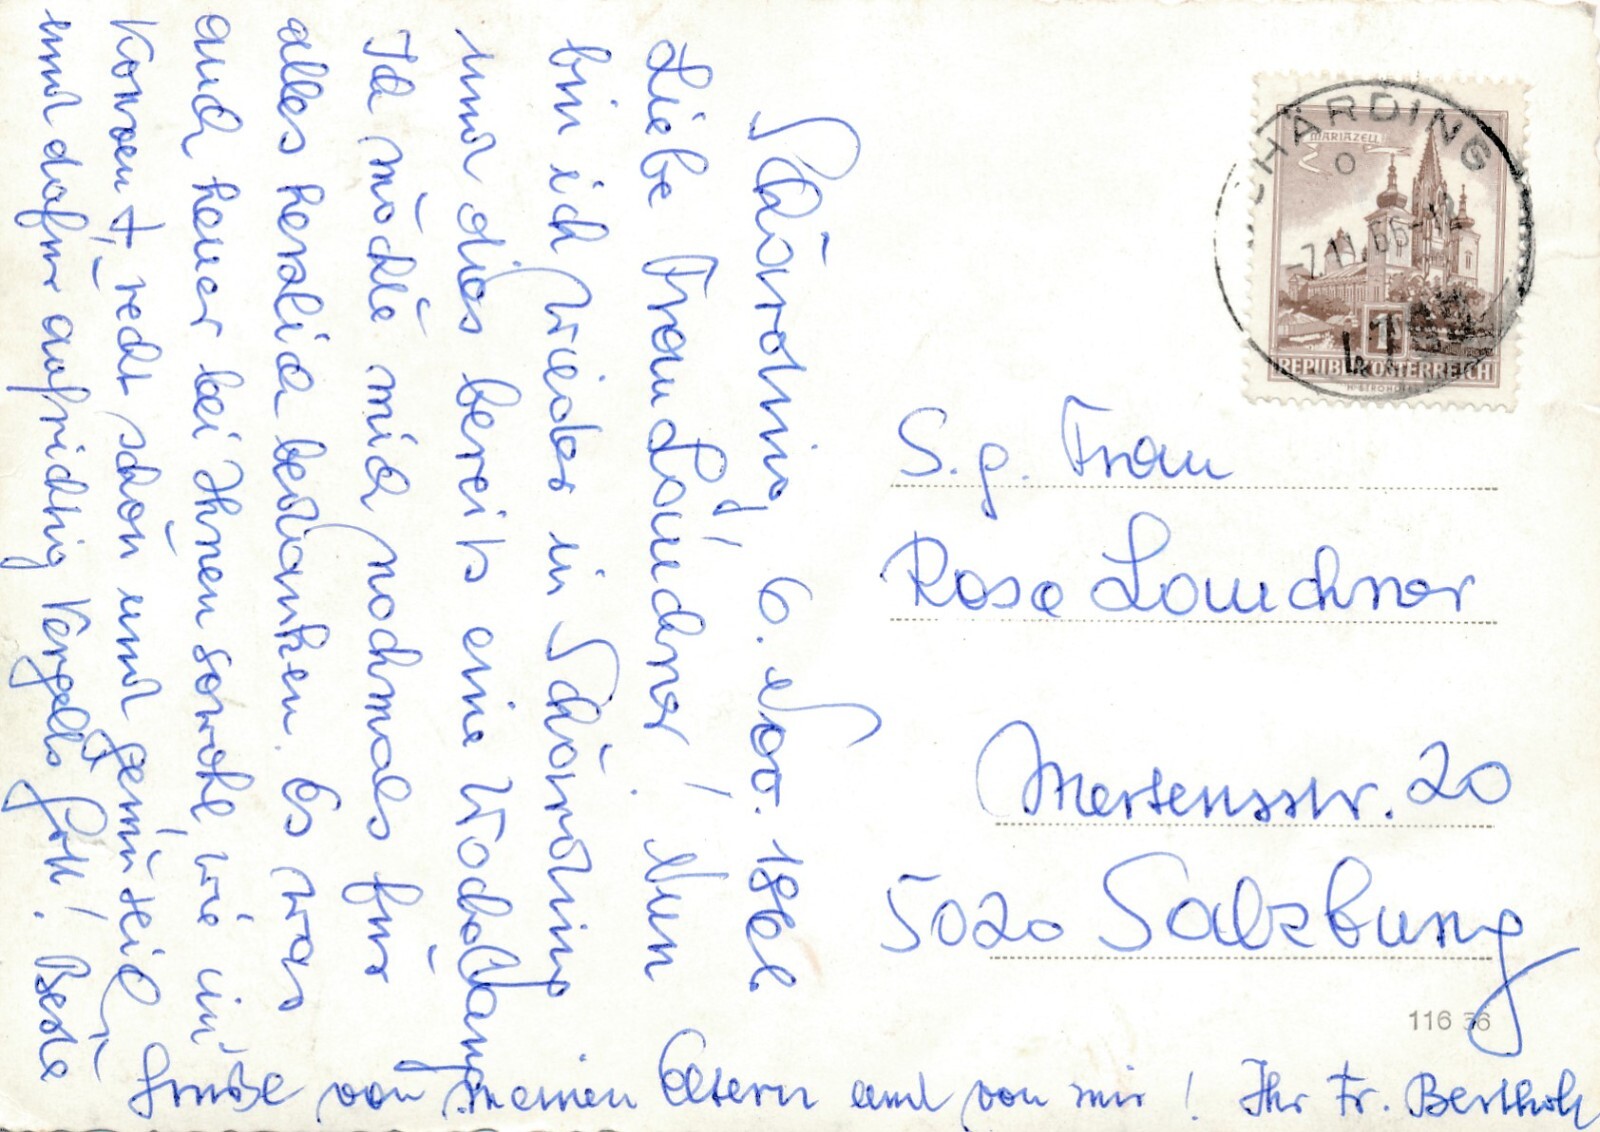 Schärding, 6. Nov. 1966
Liebe Frau Lauchner! Nun
bin ich wieder in Schärding
und dies bereits eine Woche lang.
Ich möchte mich nochmals für
alles herzlich bedanken. Es war
auch heuer bei Ihnen sowohl, wie im
Konvent, recht schön und gemütlich
und dafür aufrichtig Vergelts Gott! Beste
Grüße von meinen Eltern und von mir! Ihr Fr. Berthold
SCHÄRDING
-7.11.66-12
MARIAZELL
1
REPUBLIK ÖSTERREICH
S. g. Frau
Rosa Lauchner
Mertensstr. 20
5020 Salzburg
116 36